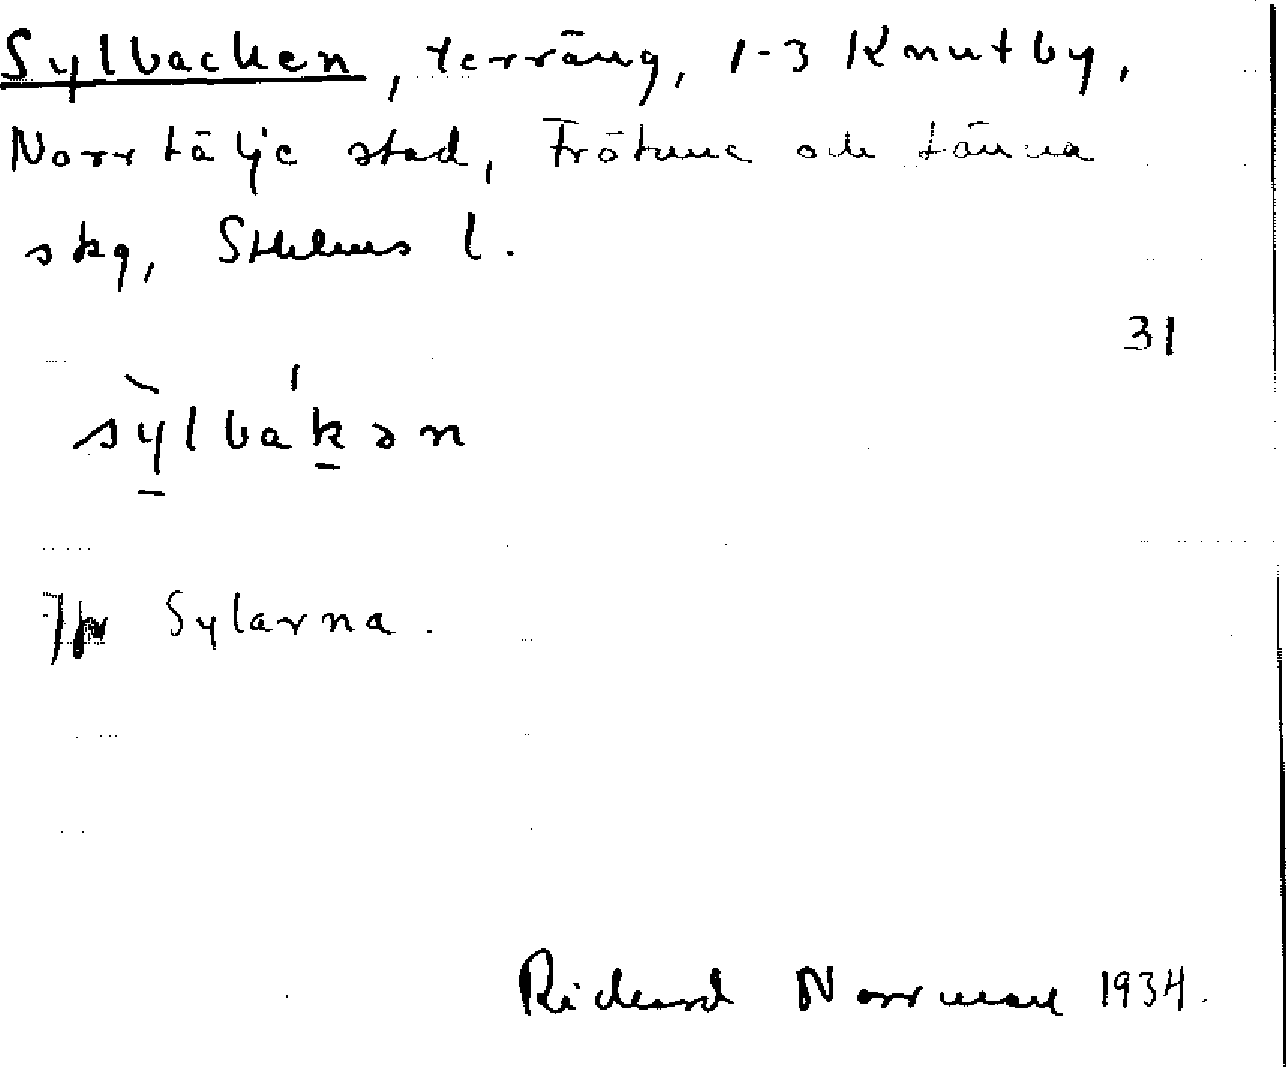 Sylbacken, terräng, 1-3 Knutby,
Norrtälje stad, Frötuna och Länna
skg, Sthlms l.
31
sỳlbák̠ən
Jfr Sylarna.
Rickard Norrman 1934.